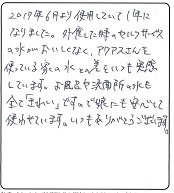 2017年6月より使用していて1年に
なりました。外食した時のセルフサービス
の水がおいしくなく、アクアスさんを
使っている家の水との差をいつも実感
しています。お風呂や洗面所の水も
全て「きれい」ですので娘にも安心して
使わせています。いつもありがとうございます。